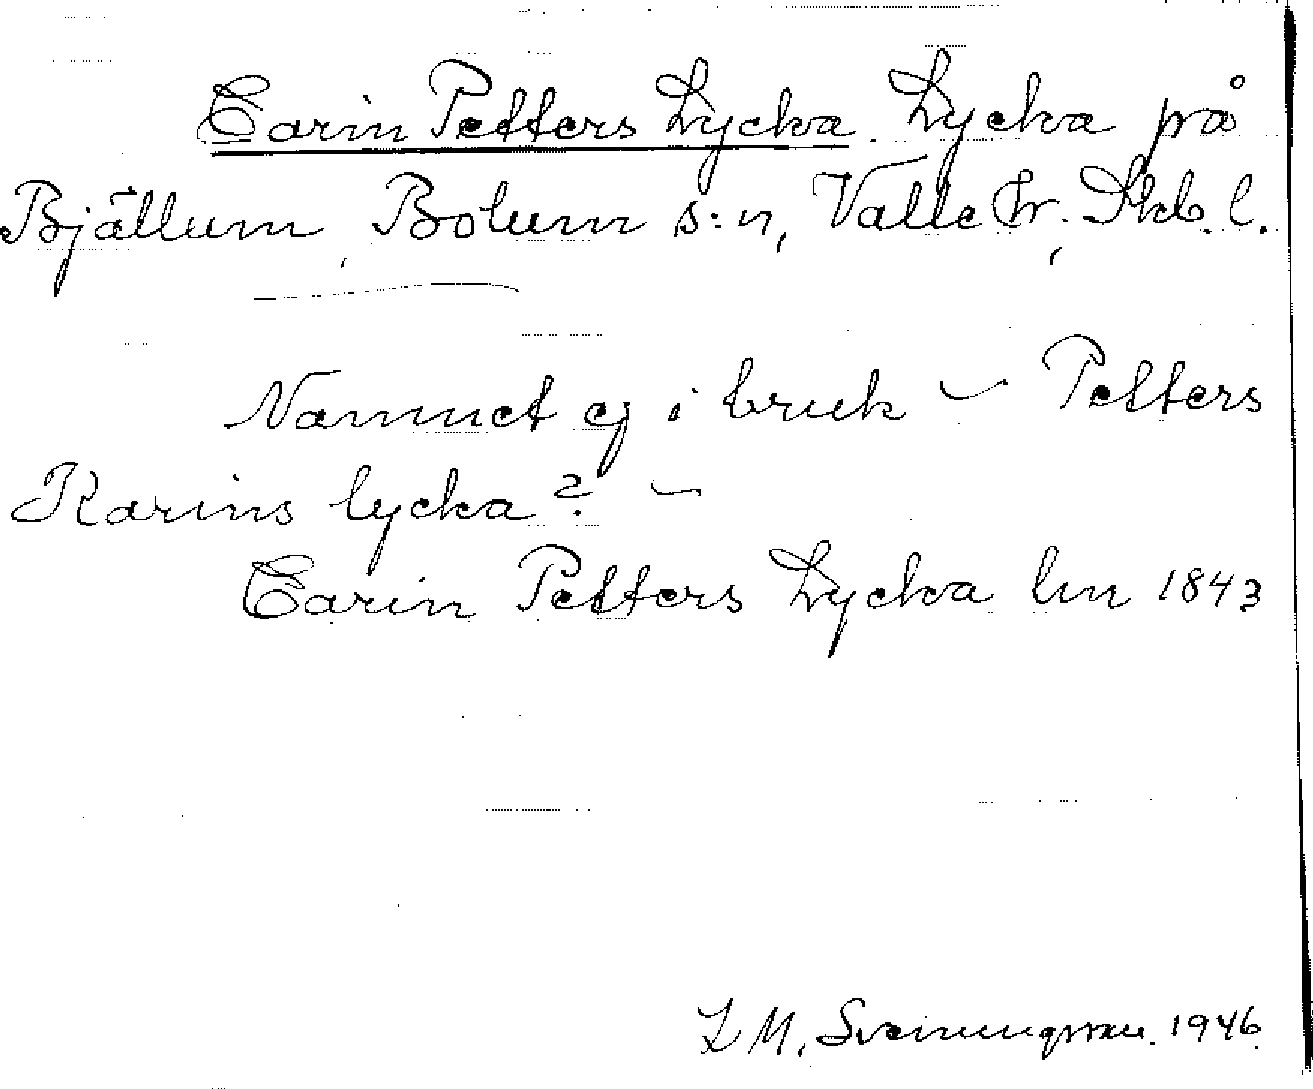 Carin Petters Lycka. Lycka på
Bjällum, Bolum s:n, Valle hr. Skb. l.
Namnet ej i bruk – Petters
Karins lycka? –
Carin Petters Lycka lm 1843
L M. Sveinungsson. 1946.